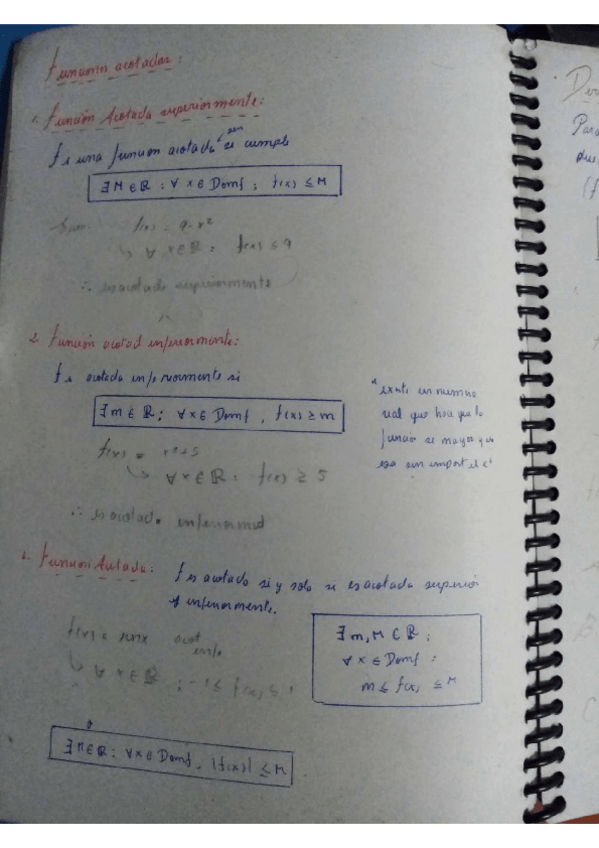 Funcionn acotadas:
1. Función Acotada superiormente:
f es una función acotada sen si cumple
∃ M ∈ ℝ : ∀ x ∈ Domf ; f(x) ≤ M
f(x) = 9-x²
↳ ∀ x ∈ ℝ : f(x) ≤ 9
∴ es acotada superiormente
2. Función acotad inferiormente:
f es acotada inferiormente si
∃ m ∈ ℝ ; ∀ x ∈ Domf , f(x) ≥ m
"existe un numero
real que hace que la
función se mayor que
eso sin import el x"
f(x) = x²+5
↳ ∀ x ∈ ℝ : f(x) ≥ 5
∴ es acotada inferiormnt
Función Acotada: f es acotado si y solo si es acotada superior
e inferiormente.
∃ m, M ∈ ℝ ;
∀ x ∈ Domf :
m ≤ f(x) ≤ M
f(x) = senx acot
infe
↳ ∀ x ∈ ℝ : -1 ≤ f(x) ≤ 1
∃ M ∈ ℝ : ∀ x ∈ Domf , |f(x)| ≤ M